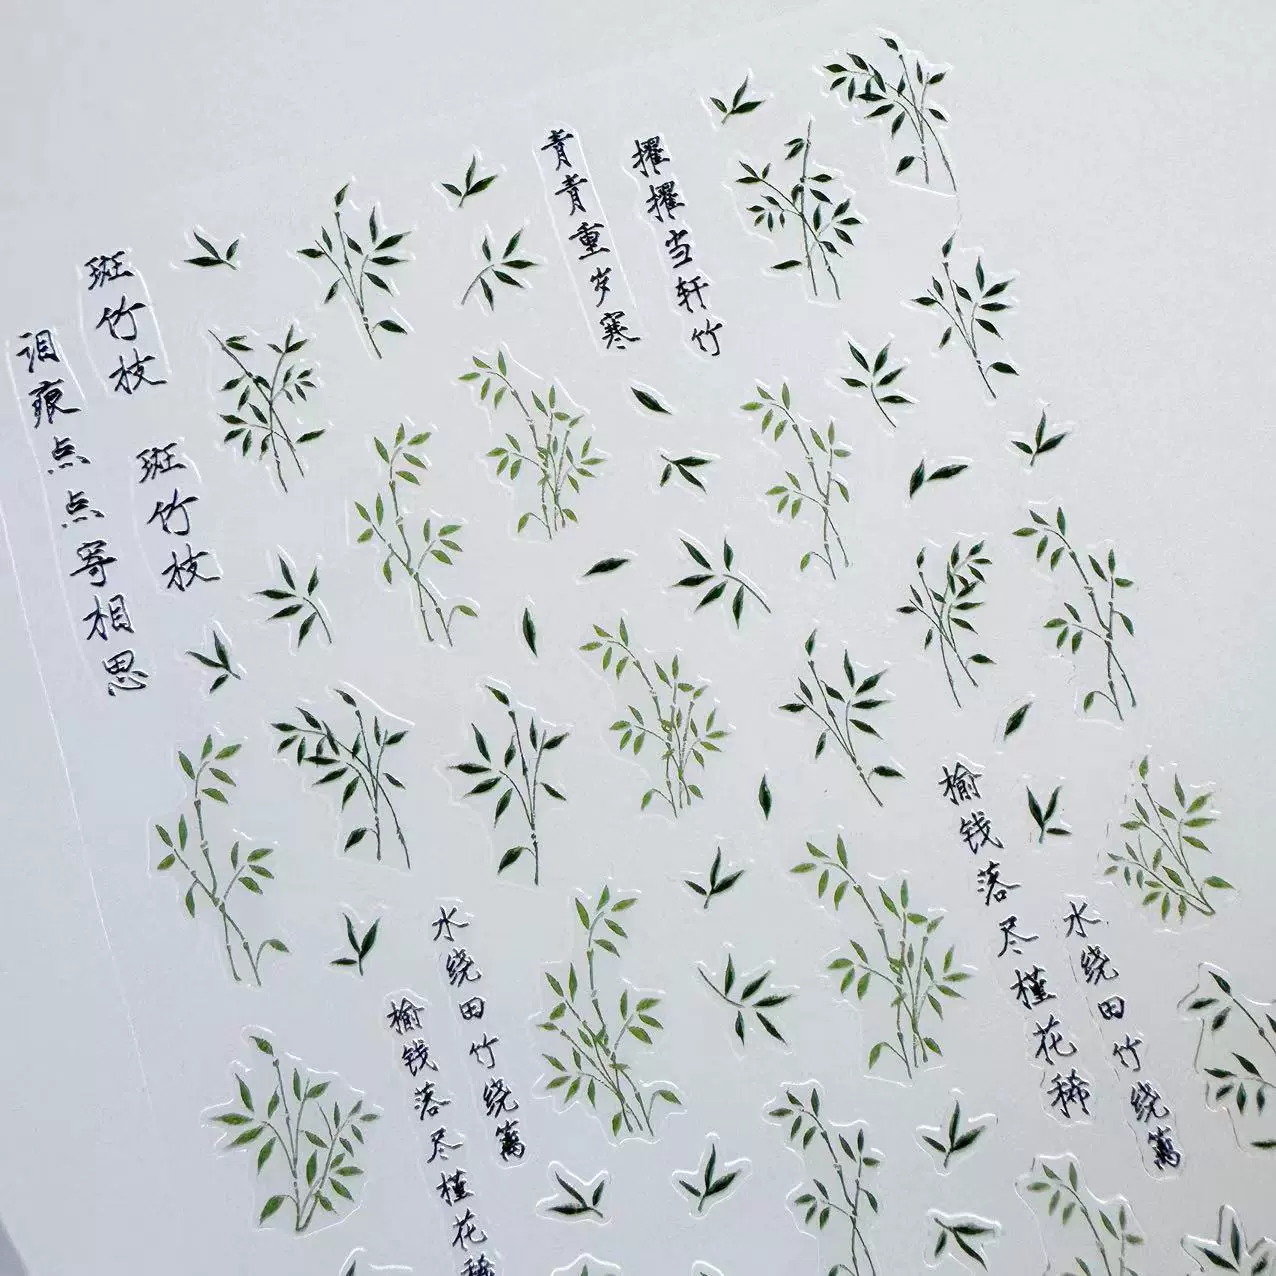 擢擢当轩竹
青青重岁寒
斑竹枝
斑竹枝
泪痕点点寄相思
水绕田竹绕篱
榆钱落尽槿花稀
水绕田竹绕篱
榆钱落尽槿花稀